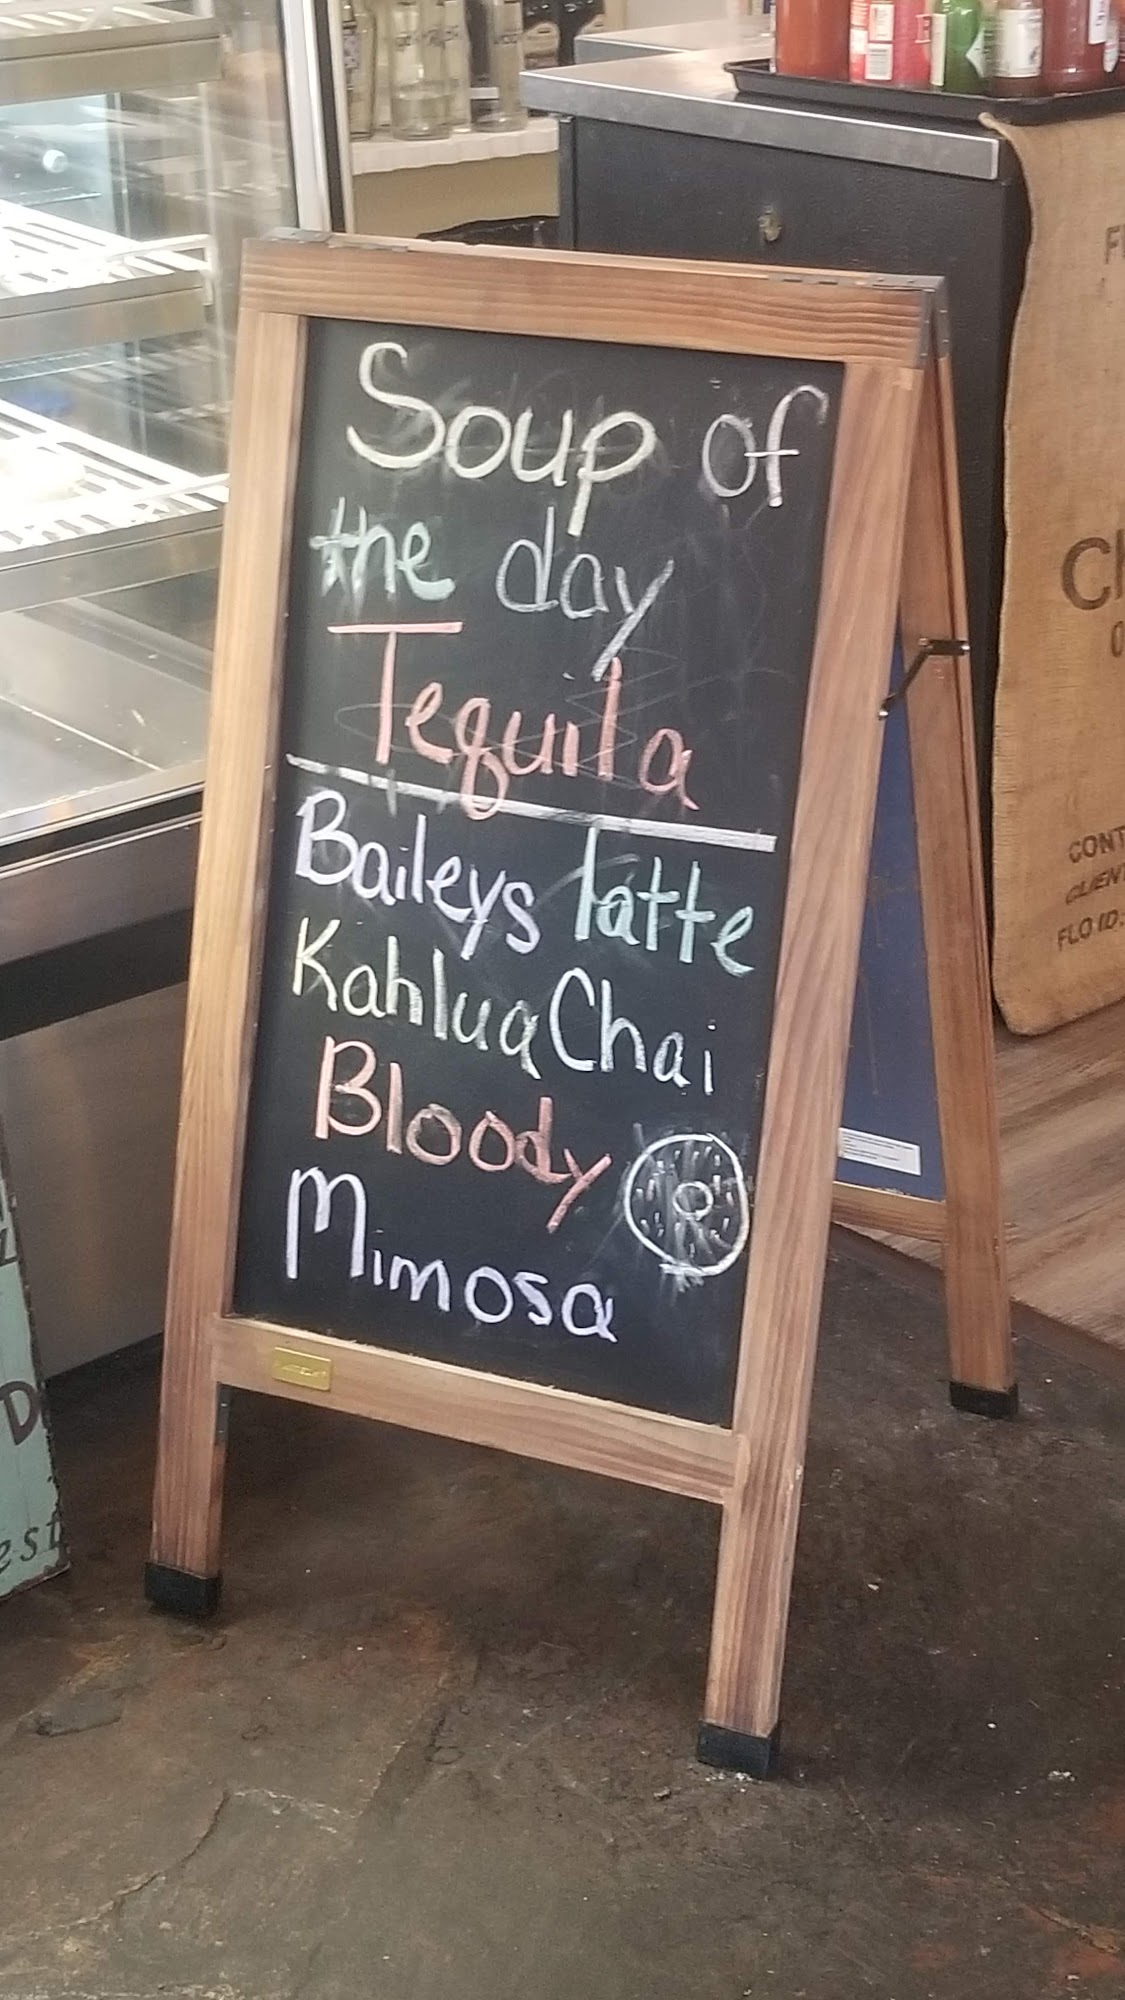 Soup of
the day
Tequila
Baileys latte
Kahlua Chai
Bloody
Mimosa
CONT
CLIENT
FLO ID:
est